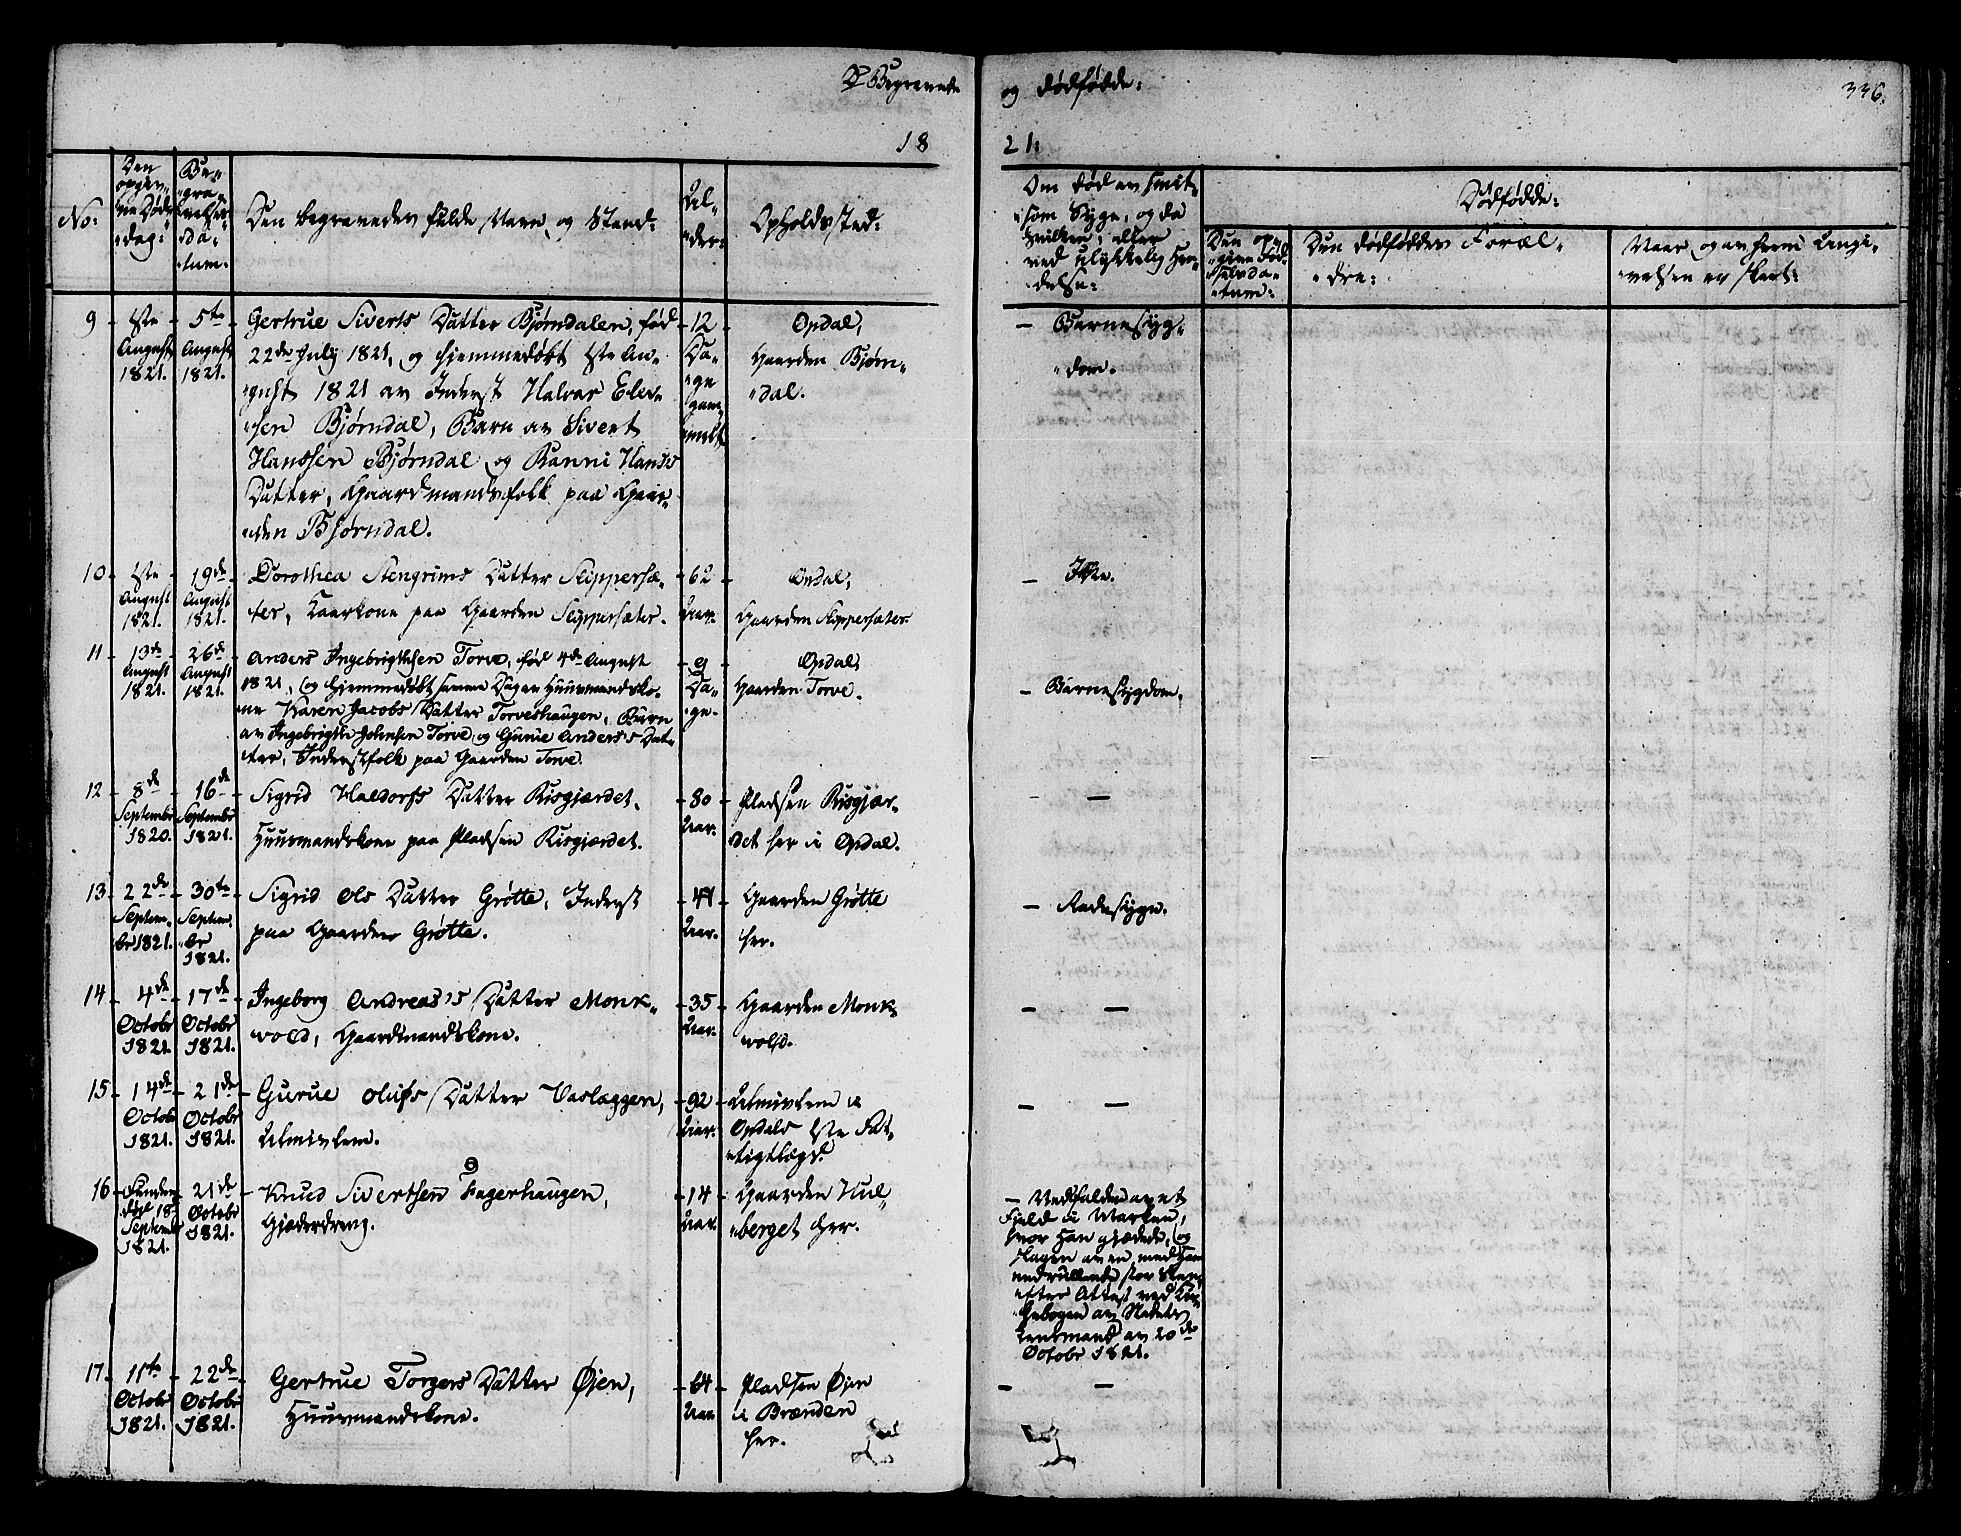 Begravede
og dødfødde:
336.
18
21.
No:
Den
opgiv„
ne Døds
„dag:
Be„
„gra„
velses„
„da„
„tum.
Den begravedes fulde Navn, og Stand:
Al„
„der:
Opholdssted:
Om død av smit„
„som Syge, og da
hvilken, eller
ved ulykkelig Hæn„
„delse:
Dødfødde:
Den op„
„givne Fød„
„selsda„
„tum:
Den dødføddes Foræl„
„dre:
Naar, og av hvem Angi„
„velsen er skeet:
9
1ste
August
1821.
5te
August
1821.
Gertrue Siverts Datter Bjørndalen, fød
22de July 1821, og hjemmedøbt 1ste Au„
„gust 1821 av Inderst Halvor Elev„
„sen Bjørndal, Barn av Sivert
Hansen Bjørndal og Ranni Hans's
Datter, Gaardmandsfolk paa Gaar„
„den Bjørndal.
12
Da„
„ge
gam„
„melt
Opdal,
Gaarden Bjørn„
„dal.
— Barnesyg„
„dom.
10
1ste
August
1821.
19de
August
1821.
Dorothea Stengrims Datter Slippersæ„
ter, Kaarkone paa Gaarden Slippersæter.
62
Aar.
Opdal,
Gaarden Slippersæter
— Ikke.
11
13de
August
1821.
26de
August
1821.
Anders Ingebrigtsen Torve, fød 4de August
1821, og hjemmedøbt samme Dag av Huusmandsko„
ne Karen Jacobs Datter Torveshaugen, Barn
av Ingebrigt Johnsen Torve og Gurue Anders's Dat„
ter, Inderstfolk paa Gaarden Torve.
9
Da„
„ge.
Opdal,
Gaarden Torve.
— Barnesygdom.
12
8de
Septembr
1820.
16de
Septembr
1821.
Sigrid Haldors Datter Risgjærdet.
Huusmandskone paa Pladsen Risgjærdet.
80
Aar.
Pladsen Risgjær„
det her i Opdal.
— —
13
22de
Septem„
br 1821.
30te
Septem„
„br
1821.
Sigrid Ols Datter Grøtte, Inderst
paa Gaarden Grøtte.
44
Aar.
Gaarden Grøtte
her.
— Radesyge.
14
4de
Octobr
1821.
17de
Octobr
1821.
Ingeborg Andreas's Datter Monk„
vold, Gaardmandskone.
35
Aar.
Gaarden Monk„
vold.
— —
15
14de
Octobr
1821.
21de
Octobr
1821.
Gurue Olufs Datter Vaslaggen,
Almislem.
92
Aar.
Almislem i
Opdals 1ste Fat„
„tigtlægd.
— —
16
Funden
død 18
Septembr
1821.
21de
Octobr
1821.
Knud Sivertsen Fagerhaugen,
Gjæderdreng.
14
Aar.
Gaarden Hul„
„berget her.
— Nedfalden av et
Fjeld i Marken,
hvor han gjædede, og
slagen av en med ham
nedrullende stor Sten,
efter Attest ved Kir„
„kebogen av Stedets
Lensmand av 20de
Octobr 1821.
17.
11te
Octobr
1821.
22de
Octobr
1821.
Gertrue Torgers Datter Øien,
Huusmandskone.
64
Aar.
Pladsen Øien
i Brænden
her.
— —